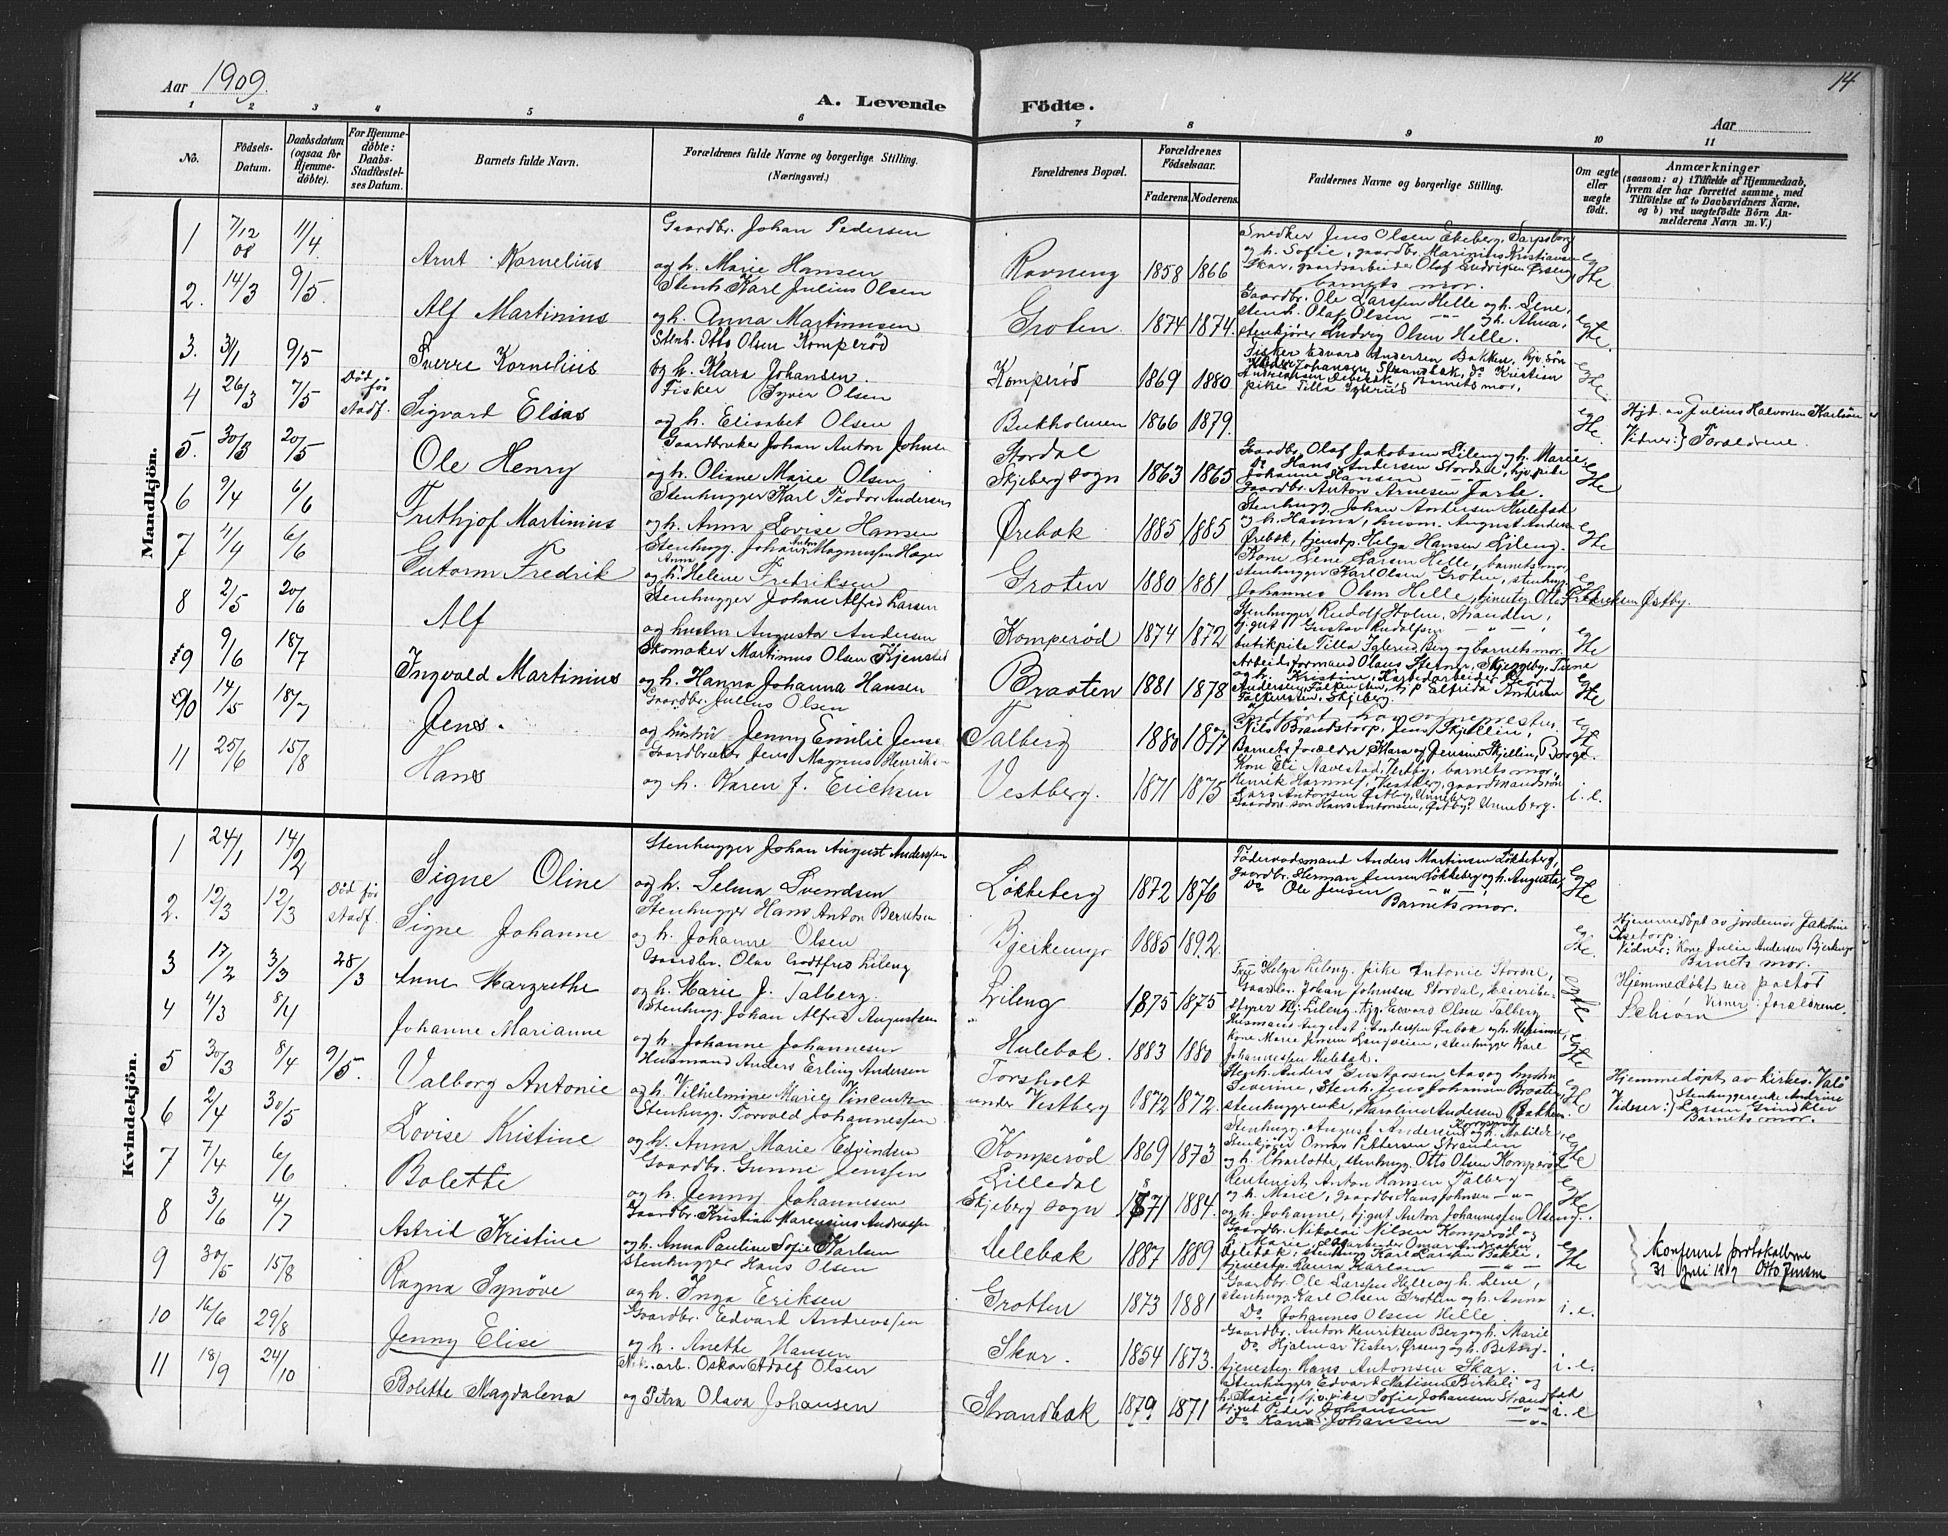 Aar 1909.
A. Levende Födte.
Aar
14
1 2 3 4 5 6 7 8 9 10 11
No.
Födsels-Datum.
Daabsdatum (ogsaa for Hjemme-döbte).
For Hjemme-döbte: Daabs-Stadfæstel-ses Datum.
Barnets fulde Navn.
Forældrenes fulde Navne og borgerlige Stilling. (Næringsvei.)
Forældrenes Bopæl.
Forældrenes Födselsaar.
Faderens. Moderens.
Faddernes Navne og borgerlige Stilling.
Om ægte eller uægte födt.
Anmærkninger
(saasom: a) i Tilfælde af Hjemmedaab,
hvem der har forrettet samme, med
Tilföielse af to Daabsvidners Navne,
og b) ved uægtefödte Börn An-
melderens Navn m. V.)
Mandkjön.
1 7/12 08 11/4 Arnt Kornelius
Gaardbr. Johan Pedersen
og h. Marie Hansen
Ravneng 1858 1866
Snedker Jens Olsen Ekeberg, Sarpsborg
og h. Sofie, gaardbr. Marinius Kristiansen
Skar, gaardsarbeider Olaf
barnets mor.
egte
2. 14/3 9/5. Alf Martinius
Stenh. Karl Julius Olsen
og h. Anna Martinusen
Groten 1874 1874.
Gaardbr. Ole Larsen Helle og h. Lene,
stenh. Olaf Olsen og h. Alma,
stenkjører Ludvig Olsen Helle.
egte
3. 3/1 9/5 Sverre Kornelius
Stenh. Otto Olsen Komperød
og h. Klara Johansen.
Komperød 1869 1880
Fisker Edvard Andersen Bakken,
Johansen Strandbak, Do Kristian
Barnets mor,
pike Tilla
egte
4 26/3 7/5 Död før stadf. Sigvard Elias
Fisker Syver Olsen
og h. Elisabet Olsen
Bukholmen 1866 1879.
egte.
Hjd. av Julius Halvorsen
Vidner: Forældrene.
5. 30/3 20/5 Ole Henry
Gaardbruker Johan Anton Johnsen
og h. Oliane Marie Olsen
Stordal Skjeberg sogn 1863 1865
Gaardbr. Olaf Jakobsen Lileng og h. Marie
Do Hans Andersen Stordal, hjp. pike
Johanne Hansen
Gaardbr. Anton Arnesen
egte
6 9/4 6/6 Frithjof Martinius
Stenhugger Karl Teodor Andersen
og h. Anna Lovise Hansen
Ørebak 1885 1885
Stenhugg. Johan Andersen Hulebak
og h. Hanna, husm. August Anders.
Ørebak, tjenstp. Helga Hansen Lileng.
egte
7 11/4 6/6 Gutorm Fredrik
Stenhugg. Johan Anton Magnussen Hager
og h. Anna Helene Fredriksen
Groten 1880 1881
Kone Lene Larsen Helle, barnets mor,
stenhugger Karl Olsen Groten, stenhugg.
Johannes Olsen Helle, tjenestg. Otto Fredriksen Østby.
egte
8 2/5 20/6 Alf
Stenhugger Johan Alfred Larsen
og hustru Augusta Andersen
Komperød 1874 1872
Stenhugger Rudolf Holm, Stranden,
tjgut Gustav Rudolfsen
butikpike Tilla Berg og barnets mor.
egte
9 9/6 18/7 Ingvald Martinius
Skomaker Martinius Olsen Kjenstad
og h. Hanna Johanna Hansen
Braaten 1881 1878
Arbeidsformand Olaus Steiner, Skjeggeby, Tune
og h. Kristine, Georg
Andersen, tjp. Elfrida Andersen
Skjeberg.
egte
10 14/5 18/7 Jens.
Gaardbr. Julius Olsen
og hustru Jenny Emilie Jense
Talberg 1880 1877
Nils Brandstorp, Jens Skjellin,
Barnets forældre, Klara og Jensine Skjellin, Borge.
egte
11 25/6 15/8 Hans
Gaardbruker Jens Magnus Henriks-
og h. Karen J. Erichsen
Vestberg. 1871 1875
Kone Eli Navestad, Vestby, barnets mor,
Henrik Hammel, Vestberg, gaardmandssøn
Lars Antonsen Østby, Unneberg
Gaardm. søn Hans Antonsen, Østby, Unneberg.
i. e.
Kvindekjön.
1 24/1 14/2 Signe Oline
Stenhugger Johan August Anderssen
og h. Selma Svendsen
Løkkeberg 1872 1876
Föderaadsmand Anders Martinsen Løkkeberg,
Gaardbr. Herman Jensen Løkkeberg og h. Augusta,
Do Ole Jensen
Barnets mor.
egte
2. 12/3 12/3 Død før stadf. Signe Johanne
Stenhugger Hans Anton Berntsen
og h. Johanne Olsen
Bjerkemyr 1885 1892.
egte
Hjemmedøpt av jordemor Jakobine
Vidner: Kone Julie Andersen Bjerkemyr
Barnets mor.
3 17/2 3/3 28/3 Anne Margrethe
Gaardbr. Olav Godtfred Lileng
og h. Marie J. Talberg.
Lileng 1875 1875
Frk Helga Lileng, pike Antonie Stordal,
Gaardbr. Johan Johnsen Stordal, meieribe-
styrer Hj. Lileng, tjg. Edvard Olsen Talberg
egte
Hjemmedøbt ved pastor
Schiørn Vidner: forældrene.
4 4/3 8/4 Johanne Marianne
Stenhugg. Johan Alfred Augustsen
og h. Johanne Johannesen
Hulebak. 1883 1880
Husmand August Anderssen Ørebak og h. Marianne,
Kone Marie Jensen stenhugger Karl
Johannessen Hulebak.
egte
5 30/3 8/4 9/5. Valborg Antonie
Husmand Anders Erling Andersen
og h. Vilhelmine Marie Vincentsen
Torsholt under Vestberg 1872 1872.
Stenh. Anders Gustavsen Aas og hustru
Severine, Stenh. Jens Johansen Braaten
stenhuggerenke, Karoline Andersen Bakken.
egte
Hjemmedøpt av kirkes.
Vidner: Stenhuggerenke Andrine
Larsen
Barnets mor.
6 2/4 30/5 Lovise Kristine
Stenhugg. Torvald Johannessen
og h. Anna Marie Edvindsen
Komperød 1869 1873
Stenhugg. August Andersen Komperød og h. Matilde,
Stenkjører Omar Pettersen Stranden
og h. Charlotte, stenhug. Otto Olsen Komperød
egte
7 7/4 6/6 Bolette
Gaardbr. Gunne Jenssen
og h. Jenny Johannesen
Lilledal Skjeberg sogn 1871 1884.
Rentenist Anton Hansen Talberg
og h. Marie, Gaardbr. Hans Johnsen
og h. Johanne, tjgut Anton Johannessen Olseng.
egte
8 3/6 4/7 Astrid Kristine
Gaardbr. Kristian Marensius Andreassen
og h. Anna Pauline Sofie Karlsen
Ulebak 1887 1889
Gaardbr. Nikolai Nilsen Komperød og
h. Marie, arbeider Omar Andersen
Ulebak, stenhugg. Karl Larsen
tjenestep. Laura Karlsen
egte
Konferert protokollerne
31 Juli 1919 Otto Jensen
9 30/5 15/8 Ragna Synöve
Stenhugger Hans Olsen
og h. Inga Eriksen
Grotten 1873 1881
Gaardbr. Ole Larsen Helle og h. Lene,
stenhugg. Karl Olsen Grotten og h. Anna
Do Johannes Olsen Helle.
i. e.
10 16/6 29/8 Jenny Elise
Gaardbr. Edvart Andreassen
og h. Anette Hansen
Skar. 1854 1873.
Gaardbr. Anton Henriksen Berg og h. Marie
Do Hjalmar Vister, Ørseng og h. Betsy,
tjenestg. Hans Antonsen Skar.
i. e.
11 18/9 24/10 Bolette Magdalena
arb. Oskar Adolf Olsen
og Petra Olava Johansen
Strandbak 1879 1871
Stenhugger Edvart Matisen Birkeli og
h. Marie, tj. pike Sofie Johansen Strandbak
tjgut Peder Johansen
Do Karna Johansen
i. e